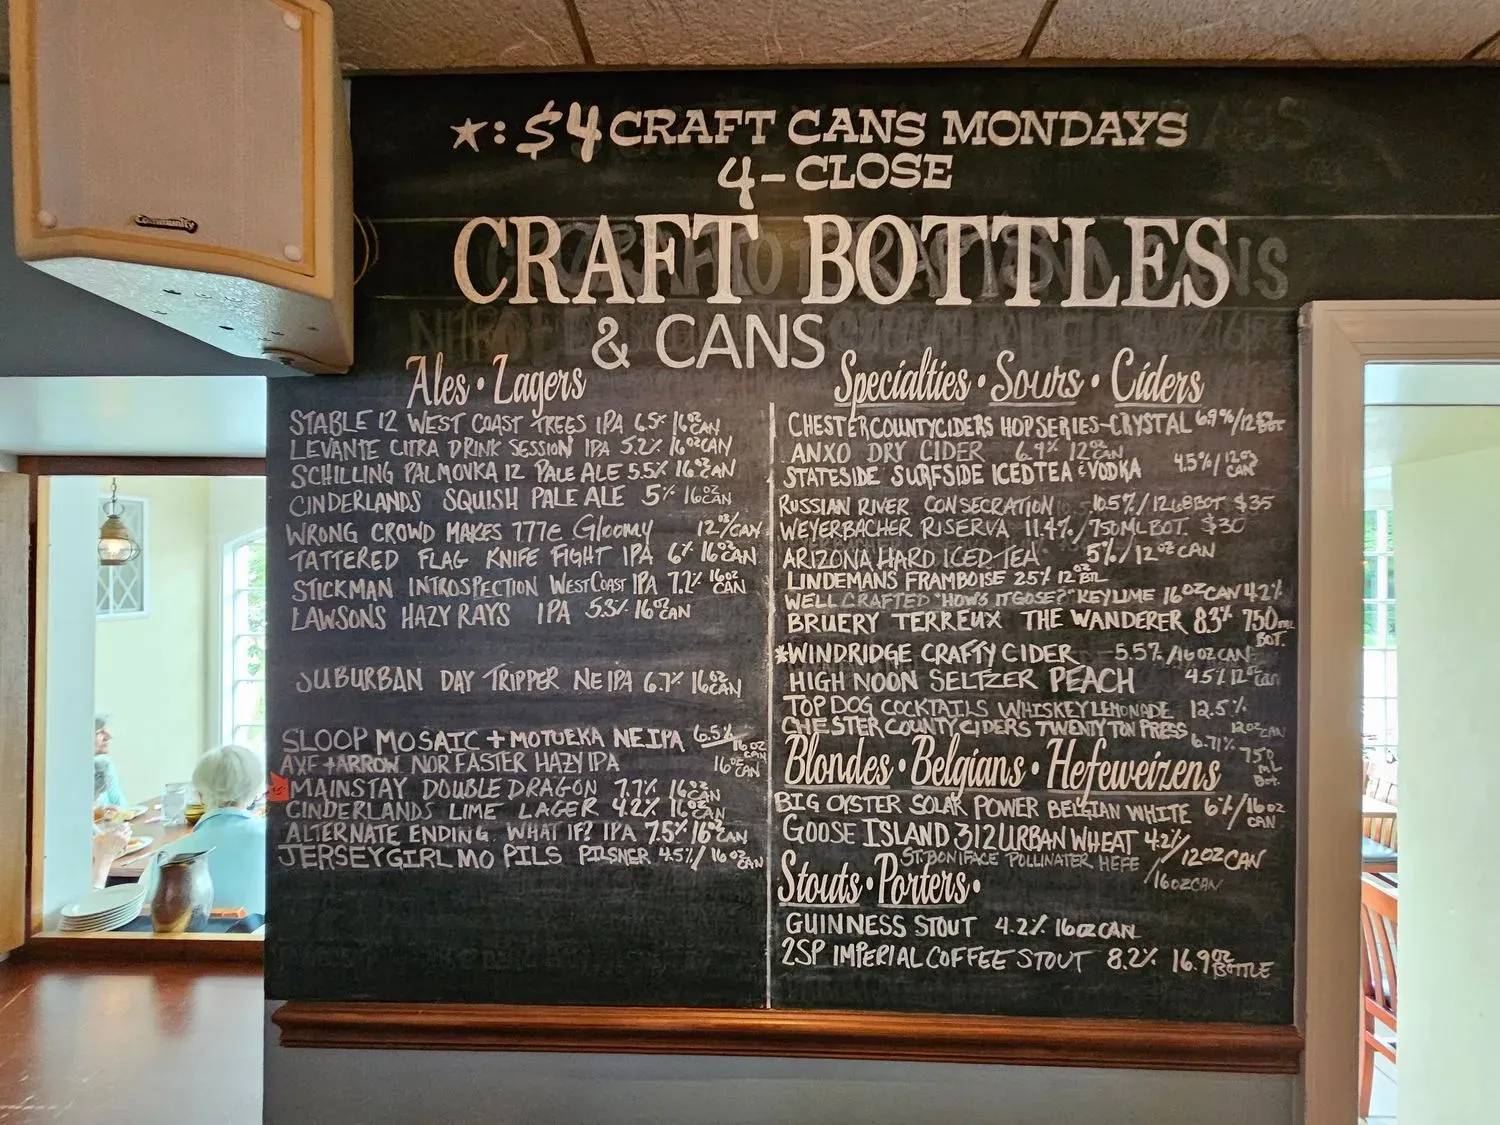 Community
★: $4 CRAFT CANS MONDAYS
4-CLOSE
CRAFT BOTTLES
& CANS
Ales • Lagers
STABLE 12 WEST COAST TREES IPA 6.5% 16OZ CAN
LEVANTE CITRA DRINK SESSION IPA 5.2% 16OZ CAN
SCHILLING PALMOVKA 12 PALE ALE 5.5% 16OZ CAN
CINDERLANDS SQUISH PALE ALE 5% 16OZ CAN
WRONG CROWD MAKES 777e Gloomy 12OZ/CAN
TATTERED FLAG KNIFE FIGHT IPA 6% 16OZ CAN
STICKMAN INTROSPECTION WEST COAST IPA 7.2% 16OZ CAN
LAWSONS HAZY RAYS IPA 5.3% 16OZ CAN
SUBURBAN DAY TRIPPER NE IPA 6.7% 16OZ CAN
SLOOP MOSAIC + MOTUEKA NE IPA 6.5% 16OZ CAN
AXE + ARROW NOR'EASTER HAZY IPA 16OZ CAN
MAINSTAY DOUBLE DRAGON 7.7% 16OZ CAN
CINDERLANDS LIME LAGER 4.2% 16OZ CAN
ALTERNATE ENDING WHAT IF? IPA 7.5% 16OZ CAN
JERSEY GIRL MO PILS PILSNER 4.5%/16OZ CAN
Specialties • Sours • Ciders
CHESTERCOUNTYCIDERS HOP SERIES-CRYSTAL 6.9%/12OZ BOT
ANXO DRY CIDER 6.9% 12OZ CAN
STATESIDE SURFSIDE ICED TEA & VODKA 4.5%/12OZ CAN
RUSSIAN RIVER CONSECRATION 10.5%/12.68BOT $35
WEYERBACHER RISERVA 11.4%/750ML BOT. $30
ARIZONA HARD ICED TEA 5%/12OZ CAN
LINDEMANS FRAMBOISE 2.5% 12OZ BTL
WELL CRAFTED "HOW'S IT GOSE?" KEY LIME 16OZ CAN 4.2%
BRUERY TERREUX THE WANDERER 8.3% 750ML BOT.
*WINDRIDGE CRAFTY CIDER -5.5%/16OZ CAN
HIGH NOON SELTZER PEACH 4.5% 12OZ can
TOP DOG COCKTAILS WHISKEY LEMONADE 12.5% 12OZ CAN
CHESTER COUNTY CIDERS TWENTY TON PRESS 6.71% 750 ML BOT.
Blondes • Belgians • Hefeweizens
BIG OYSTER SOLAR POWER BELGIAN WHITE 6%/16OZ CAN
GOOSE ISLAND 312 URBAN WHEAT 4.2%/12OZ CAN
ST. BONIFACE POLLINATER HEFE /16OZ CAN
Stouts • Porters •
GUINNESS STOUT 4.2% 16OZ CAN
2SP IMPERIAL COFFEE STOUT 8.2% 16.9OZ BOTTLE